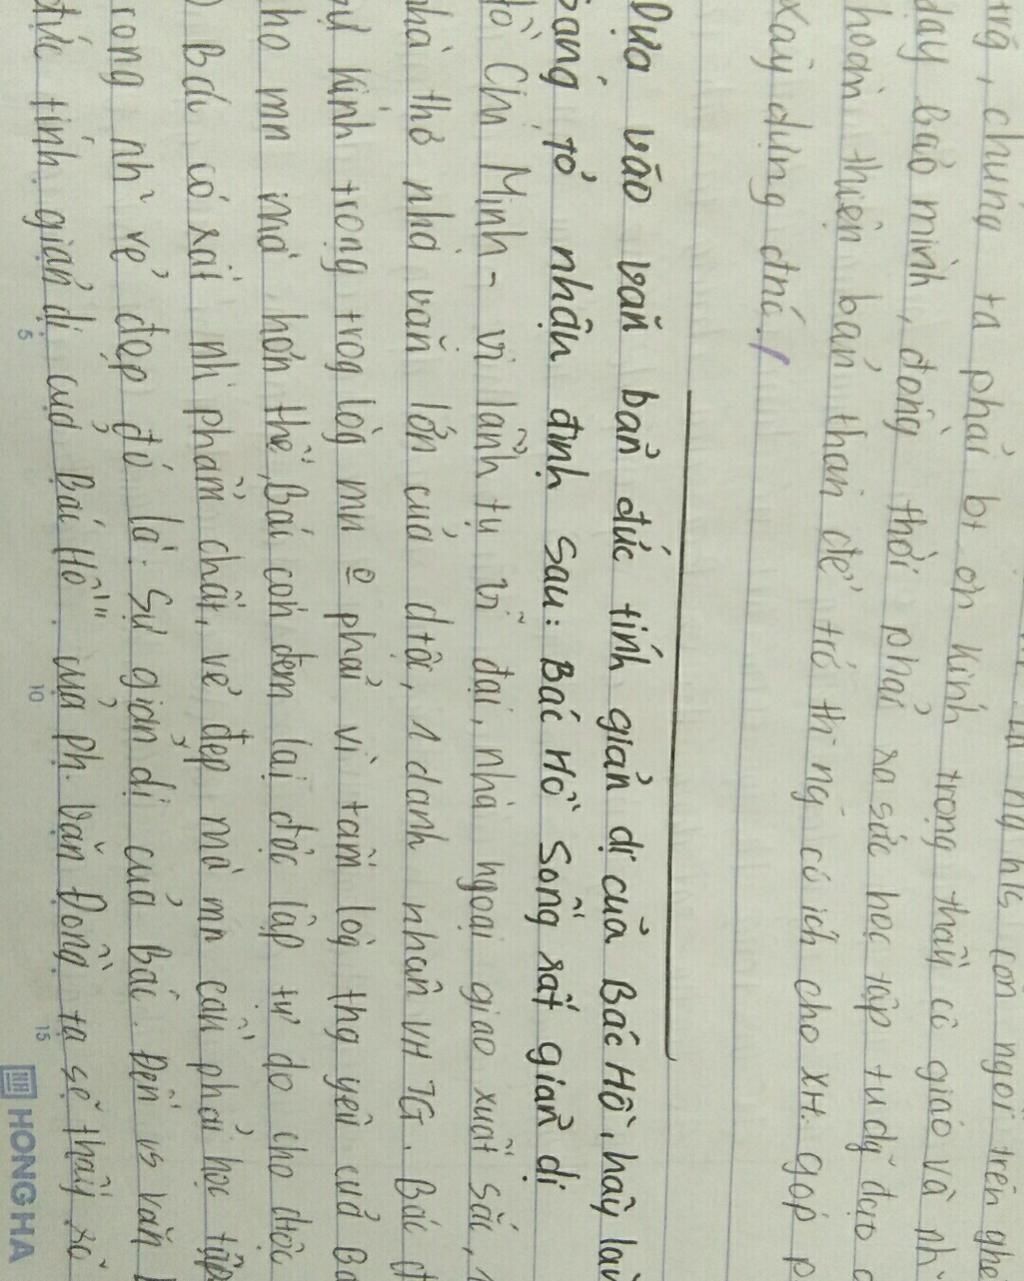 ng hs còn ngồi trên ghế
trg, chúng ta phải bt ơn kính trọng thầy cô giáo và nh~
dạy bảo mình, đồng thời phải ra sức học tập tu dg đạo
hoàn thiện bản thân để trở th~ ng có ích cho XH. góp p
xây dựng đnc./
Dựa vào văn bản đức tính giản dị của Bác Hồ, hãy làm
sáng tỏ nhận định sau: Bác Hồ Sống rất giản dị
Hồ Chí Minh - vị lãnh tụ vĩ đại, nhà ngoại giao xuất sắc, 1
nhà thơ nhà văn lớn của dtộc, 1 danh nhân VH TG. Bác
sự kính trọng trog lòg mn o phải vì tấm lòg thg yêu của Bá
cho mn mà hơn thế, Bác còn đem lại độc lập tự do cho dtộc
Bác có rất nh~ phẩm chất, vẻ đẹp mà mn cần phải học tập
trong nh~ vẻ đẹp đó là: Sự giản dị của Bác. Đến vs văn b
đức tính giản dị của Bác Hồ" của Ph. Văn Đồng ta sẽ thấy rõ
5 10 15
HONG HA